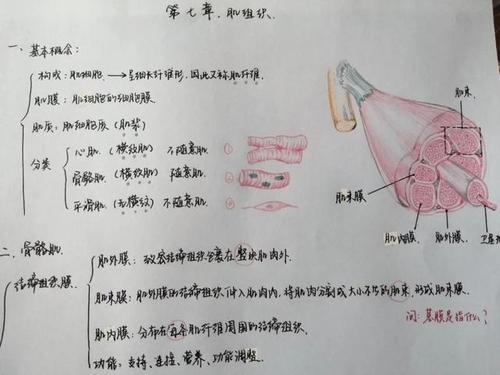 第七章.肌组织.
一、基本概念:
构成:肌细胞 → 呈细长纤维形,因此又称肌纤维.
肌膜:肌细胞的细胞膜.
肌质:肌细胞质(肌浆)
分类
心肌.(横纹肌) 不随意肌. ①
骨骼肌.(横纹肌) 随意肌. ②
平滑肌.(无横纹) 不随意肌. ③
肌束.
肌束膜
肌内膜.
肌外膜.
卫星
二、骨骼肌.
结缔组织膜
肌外膜:致密结缔组织包裹在整块肌肉外.
肌束膜:肌外膜的结缔组织伸入肌肉内,将肌肉分割成大小不等的肌束,形成肌束膜.
肌内膜:分布在每条肌纤维周围的结缔组织.
问:基膜是指什么?
功能:支持、连接、营养、功能调整.